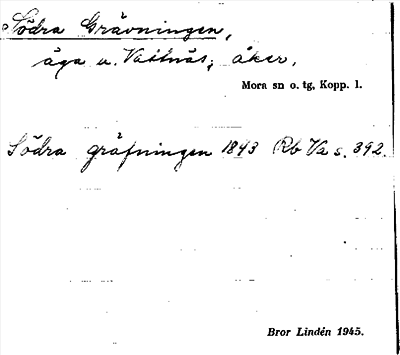 Södra Grävningen,
äga u. Vattnäs; åker.
Mora sn o. tg, Kopp. l.
Södra gräfningen 1843 Rb Va s. 392.
Bror Lindén 1945.